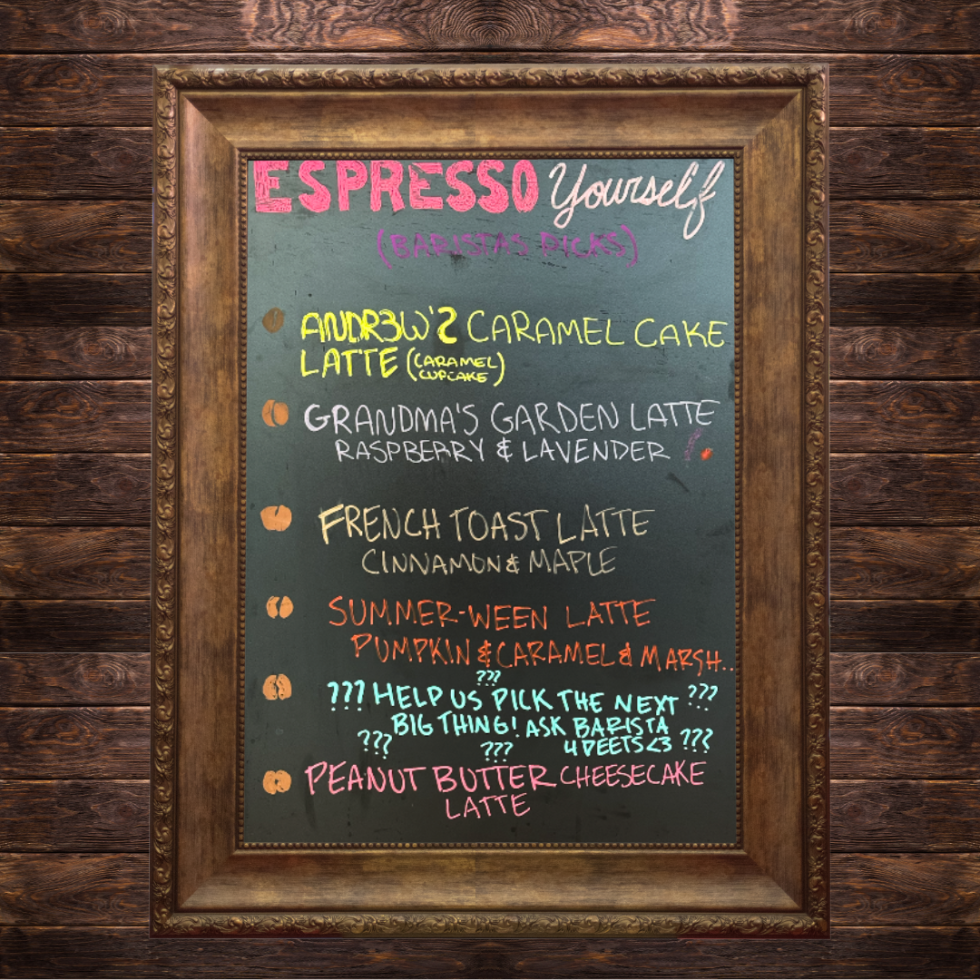 ESPRESSO Yourself
(BARISTAS PICKS)
ANDR3W'2 CARAMEL CAKE
LATTE (CARAMEL
CUPCAKE)
GRANDMA'S GARDEN LATTE
RASPBERRY & LAVENDER
FRENCH TOAST LATTE
CINNAMON & MAPLE
SUMMER-WEEN LATTE
PUMPKIN & CARAMEL & MARSH..
???
??? HELP US PICK THE NEXT ???
BIG THING! ASK BARISTA
??? ??? 4 DEETS <3 ???
PEANUT BUTTER CHEESECAKE
LATTE